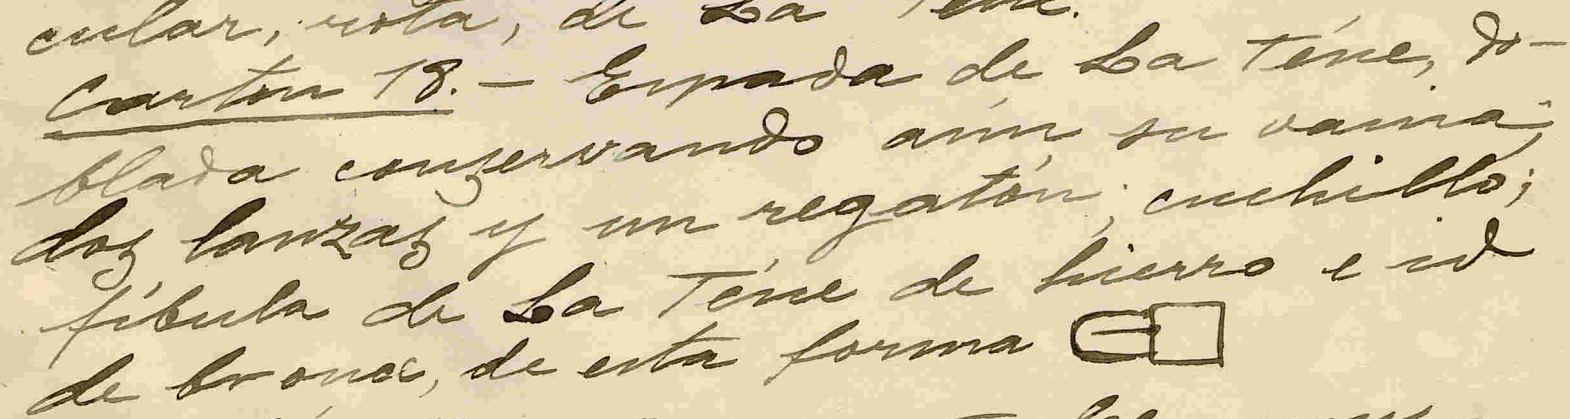 cular, rota, de La Téne.
Carton 18. — Espada de La Téne, do-
blada conservando aún su vaina;
dos lanzas y un regatón; cuchillo;
fíbula de La Téne de hierro e id
de bronce, de esta forma